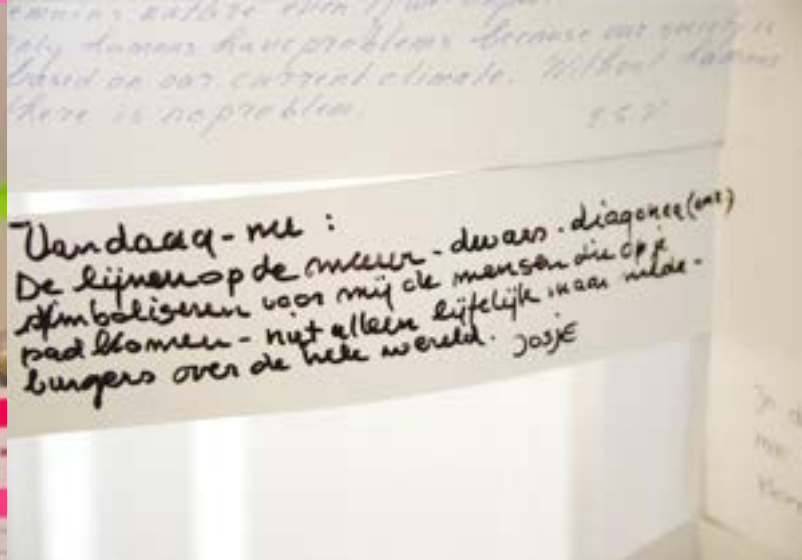 only humans have problems because our society is
based on our current climate. Without humans
there is no problem.
Vandaag-nu :
De lijnen op de muur - dwars - diagonaal
symboliseren voor mij de mensen die op je
pad komen - niet alleen lijfelijk maar mede-
burgers over de hele wereld. JosjE